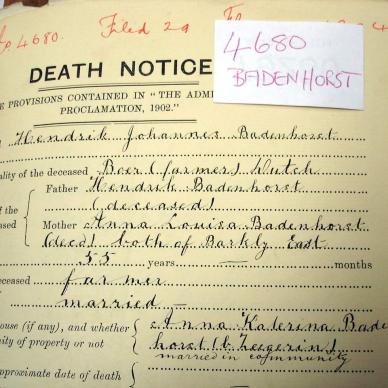 No 4680. Filed 29
4680
BADENHORST
DEATH NOTICE
E PROVISIONS CONTAINED IN "THE ADMI
PROCLAMATION, 1902."
Hendrik Johannes Badenhorst
ality of the deceased Boer (farmer) Dutch
Father Hendrik Badenhorst
(deceased)
of the
eased
Mother Anna Louisa Badenhorst
(decd) both of Barkly East
55 years — months
eceased farmer
married —
ouse (if any), and whether Anna Katerina Bade
nity of property or not horst (b. Zeegerins)
married in community
approximate date of death